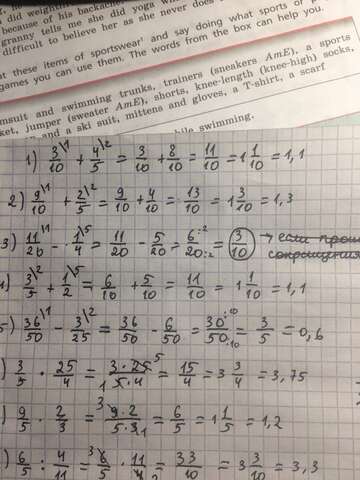 did weightli
because of his backache
granny tells me she did yoga wh
difficult to believe her as she never does
at these items of sportswear and say doing what sports or p
games you can use them. The words from the box can help you.
msuit and swimming trunks, trainers (sneakers AmE), a sports
ket, jumper (sweater AmE), shorts, knee-length (knee-high) socks,
and a ski suit, mittens and gloves, a T-shirt, a scarf
while swimming.
1) 3\1/10 + 4\2/5 = 3/10 + 8/10 = 11/10 = 1 1/10 = 1,1
2) 9\1/10 + 2\2/5 = 9/10 + 4/10 = 13/10 = 1 3/10 = 1,3
3) 11\1/20 - 1\5/4 = 11/20 - 5/20 = 6:2/20:2 = 3/10 → если прои
сокращения
4) 3\2/5 + 1\5/2 = 6/10 + 5/10 = 11/10 = 1 1/10 = 1,1
5) 36\1/50 - 3\2/25 = 36/50 - 6/50 = 30:10/50:10 = 3/5 = 0,6
) 3/5 · 25/4 = 3·25 5/1 5·4 = 15/4 = 3 3/4 = 3,75
) 9/5 · 2/3 = 3 9·2/5·3 1 = 6/5 = 1 1/5 = 1,2
) 6/5 : 4/11 = 3 6/5 · 11/4 2 = 33/10 = 3 3/10 = 3,3